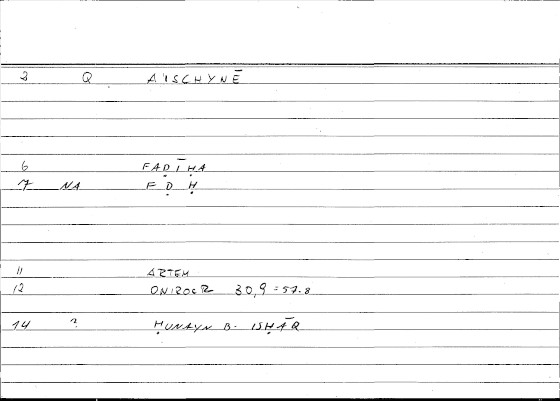 2 Q AʼISCHYNĒ
6 FAḌĪḤA
7 NA F Ḍ Ḥ
11 ARTEM
12 ONIROCR 30,9 = 57.8
14 ? ḤUNAYN B. ISḤĀQ